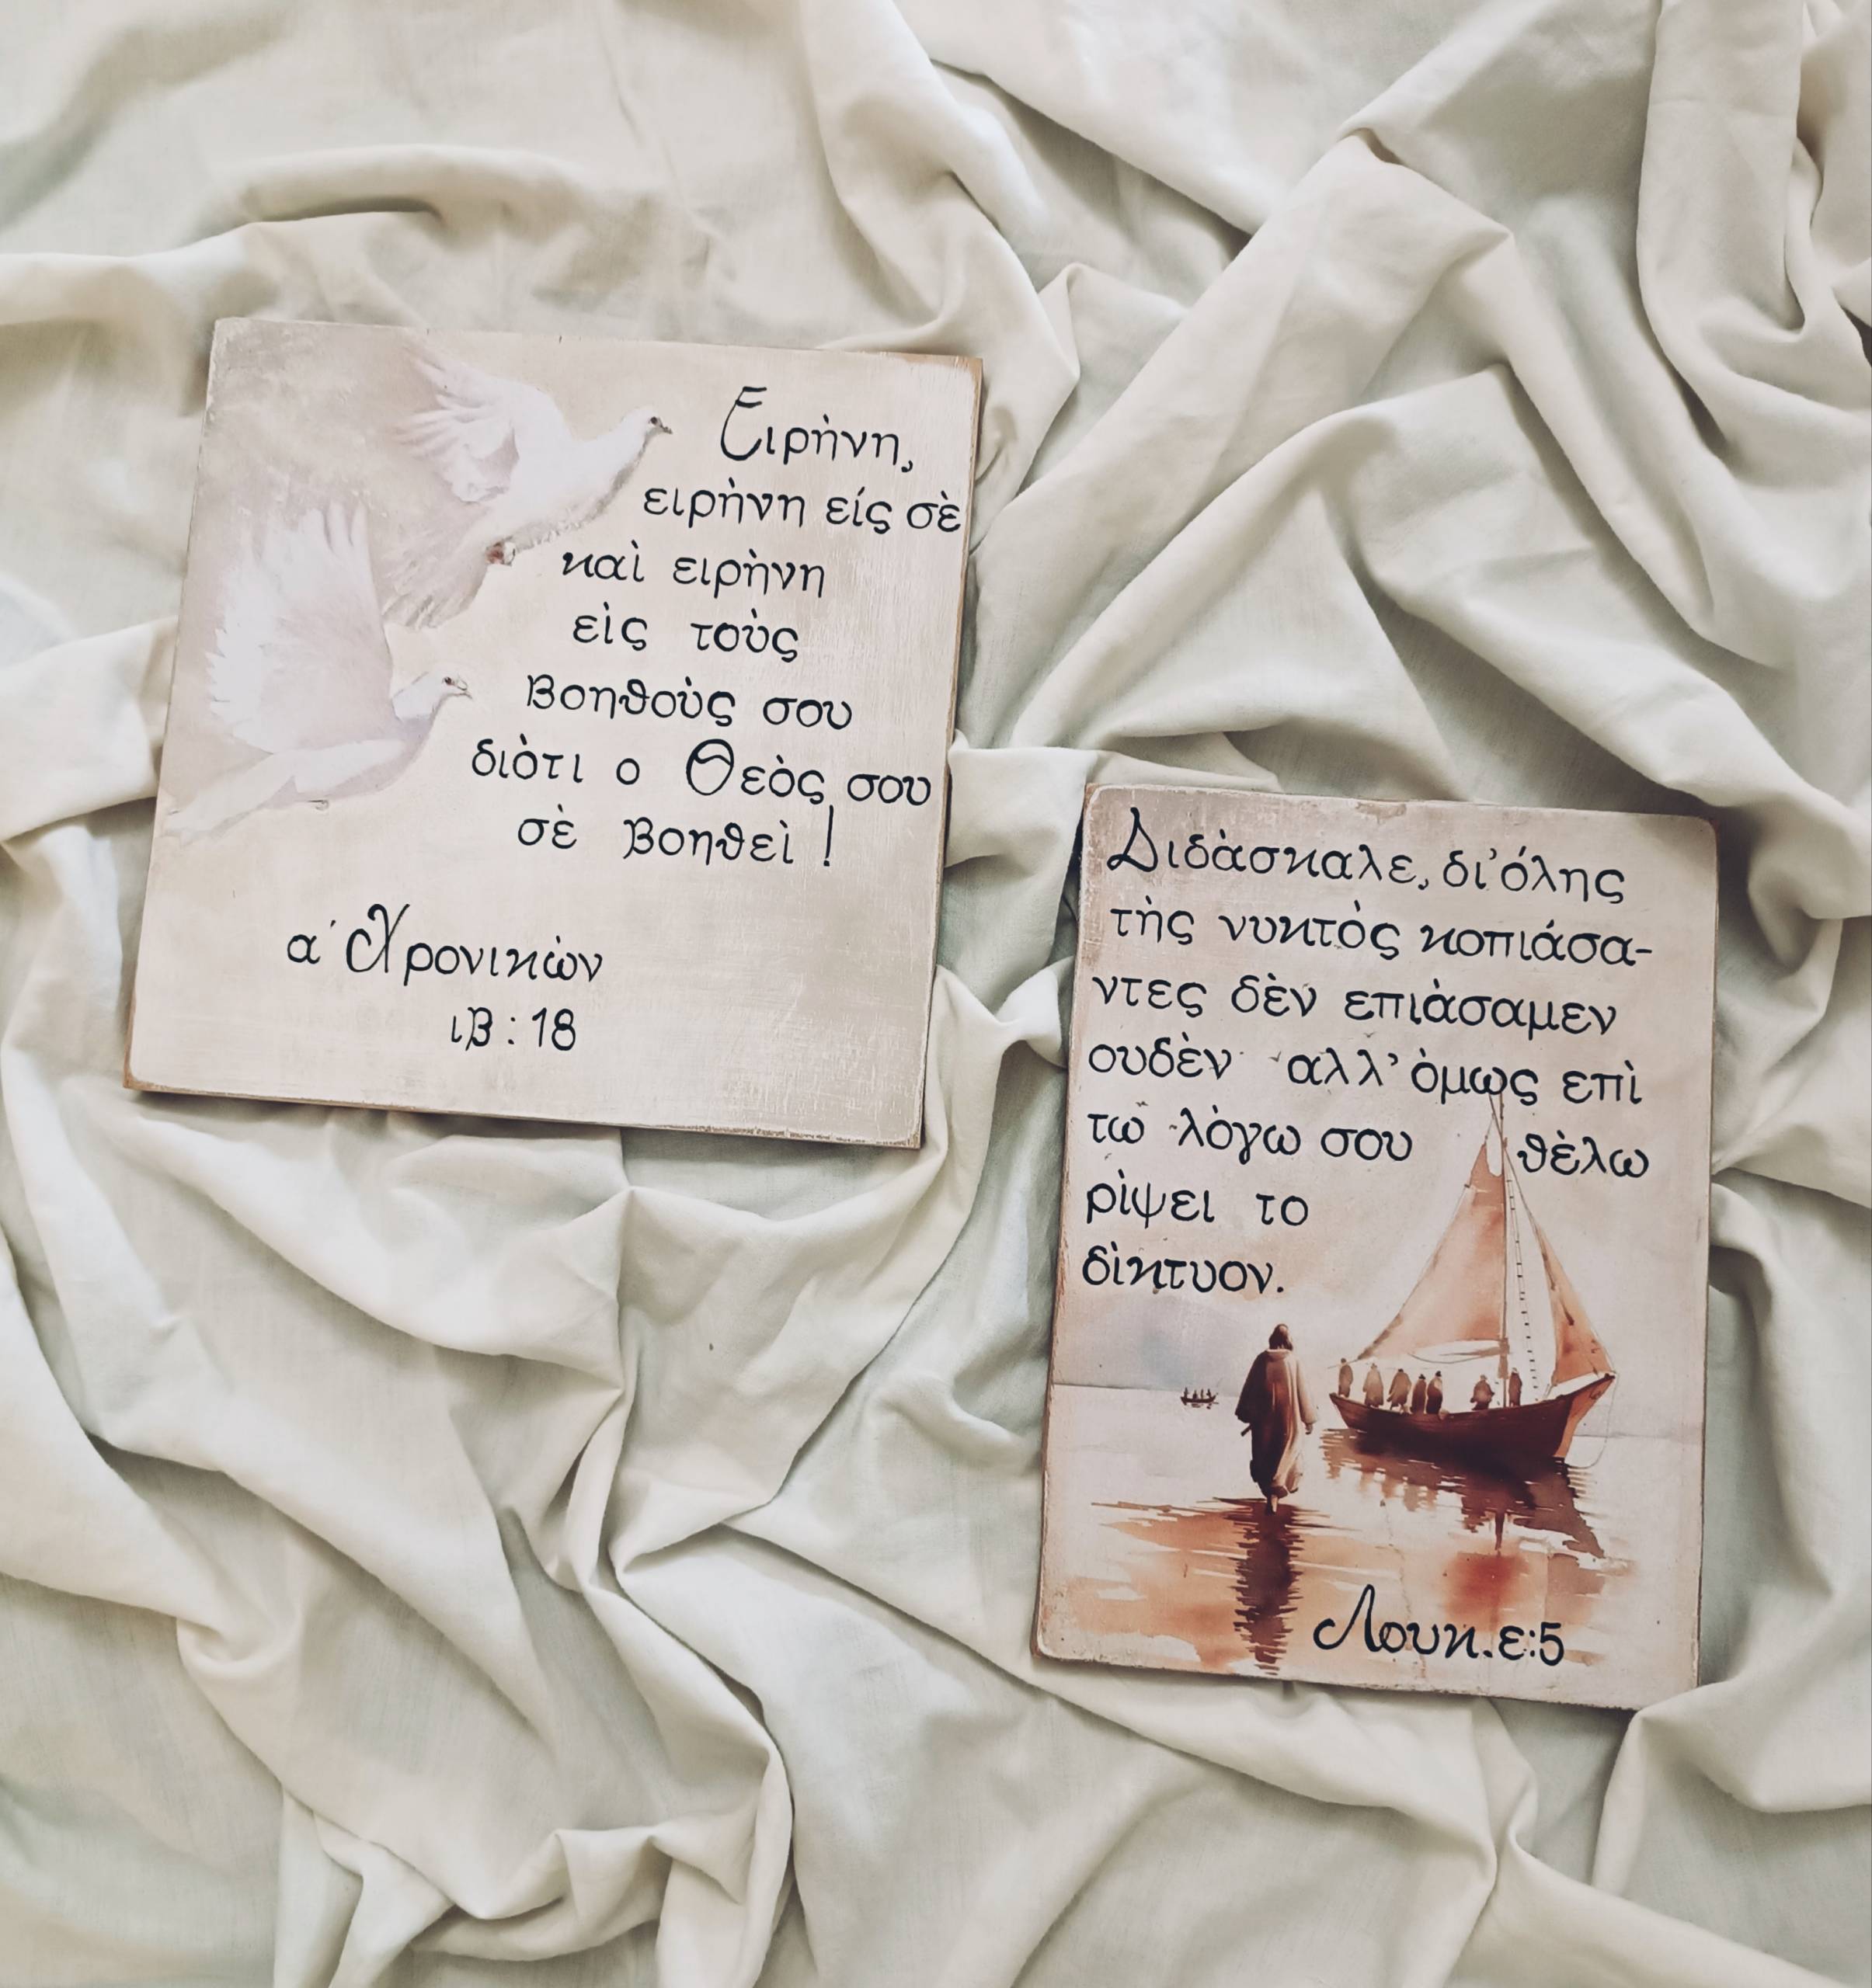 Ειρὴνη,
ειρὴνη είς σὲ
καὶ ειρὴνη
εὶς τοὺς
Βοηθοὺς σου
διὸτι ο Θεὸς σου
σὲ Βοηθεὶ!
α΄ Χρονικὼν
ιΒ:18
Διδὰσκαλε, δι'όλης
τὴς νυκτὸς κοπιάσα-
ντες δὲν επιὰσαμεν
ουδὲν αλλ' ὸμως επὶ
τω λὸγω σου θὲλω
ρὶψει το
δὶκτυον.
Λουκ.ε:5